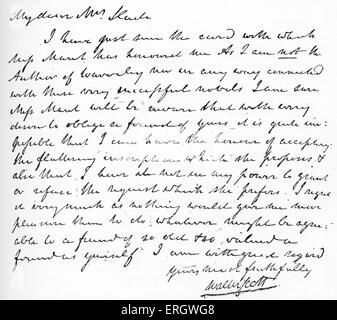 My dear Mrs. Slade
I have just seen the card with which
Miss Maud has honoured me As I am not the
Author of Waverley nor in any way connected
with these very successful novels I am sure
Miss Maud will be aware that with every
desire to oblige a friend of yours it is quite im:
possible that I can have the honour of accepting
the flattering inscription which she proposes &
also that I have it not in my power to grant
or refuse the request which she prefers. I regret
it very much as nothing would give me more
pleasure than to do whatever might be agre:
able to a friend of so old & so valued a
friend as yourself I am with great regard
yours most faithfully
Walter Scott
alamy
ERGWG8